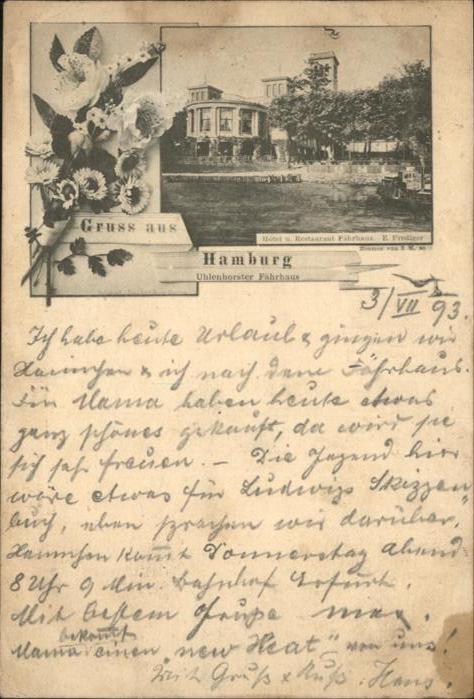 Gruss aus
Hamburg
Uhlenhorster Fährhaus
Hôtel u. Restaurant Fährhaus. E. Frediger
3/VII 93.
Ich habe heute Urlaub & gingen wir
Hannchen & ich nach dem Fährhaus.
Für Mama haben heute etwas
ganz schönes gekauft, da wird sie
sich sehr freuen. – Die Gegend hier
wäre etwas für Ludwigs Skizzen
buch, eben sprachen wir darüber.
Hannchen kom̅t Donnerstag Abend
8 Uhr 9 Min. Bahnhof Erfurt.
Mit bestem Grusse
bekom̅t
Mama einen "new Heat" von uns!
Gruß & Kuß. Hans.